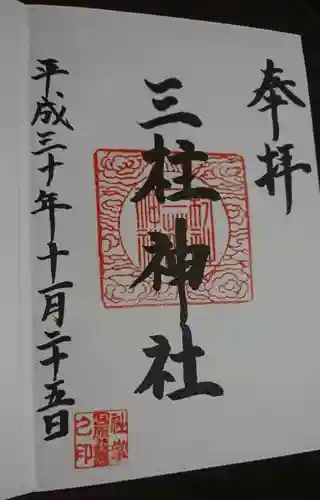 奉拝
三柱神社
平成三十年十一月二十五日